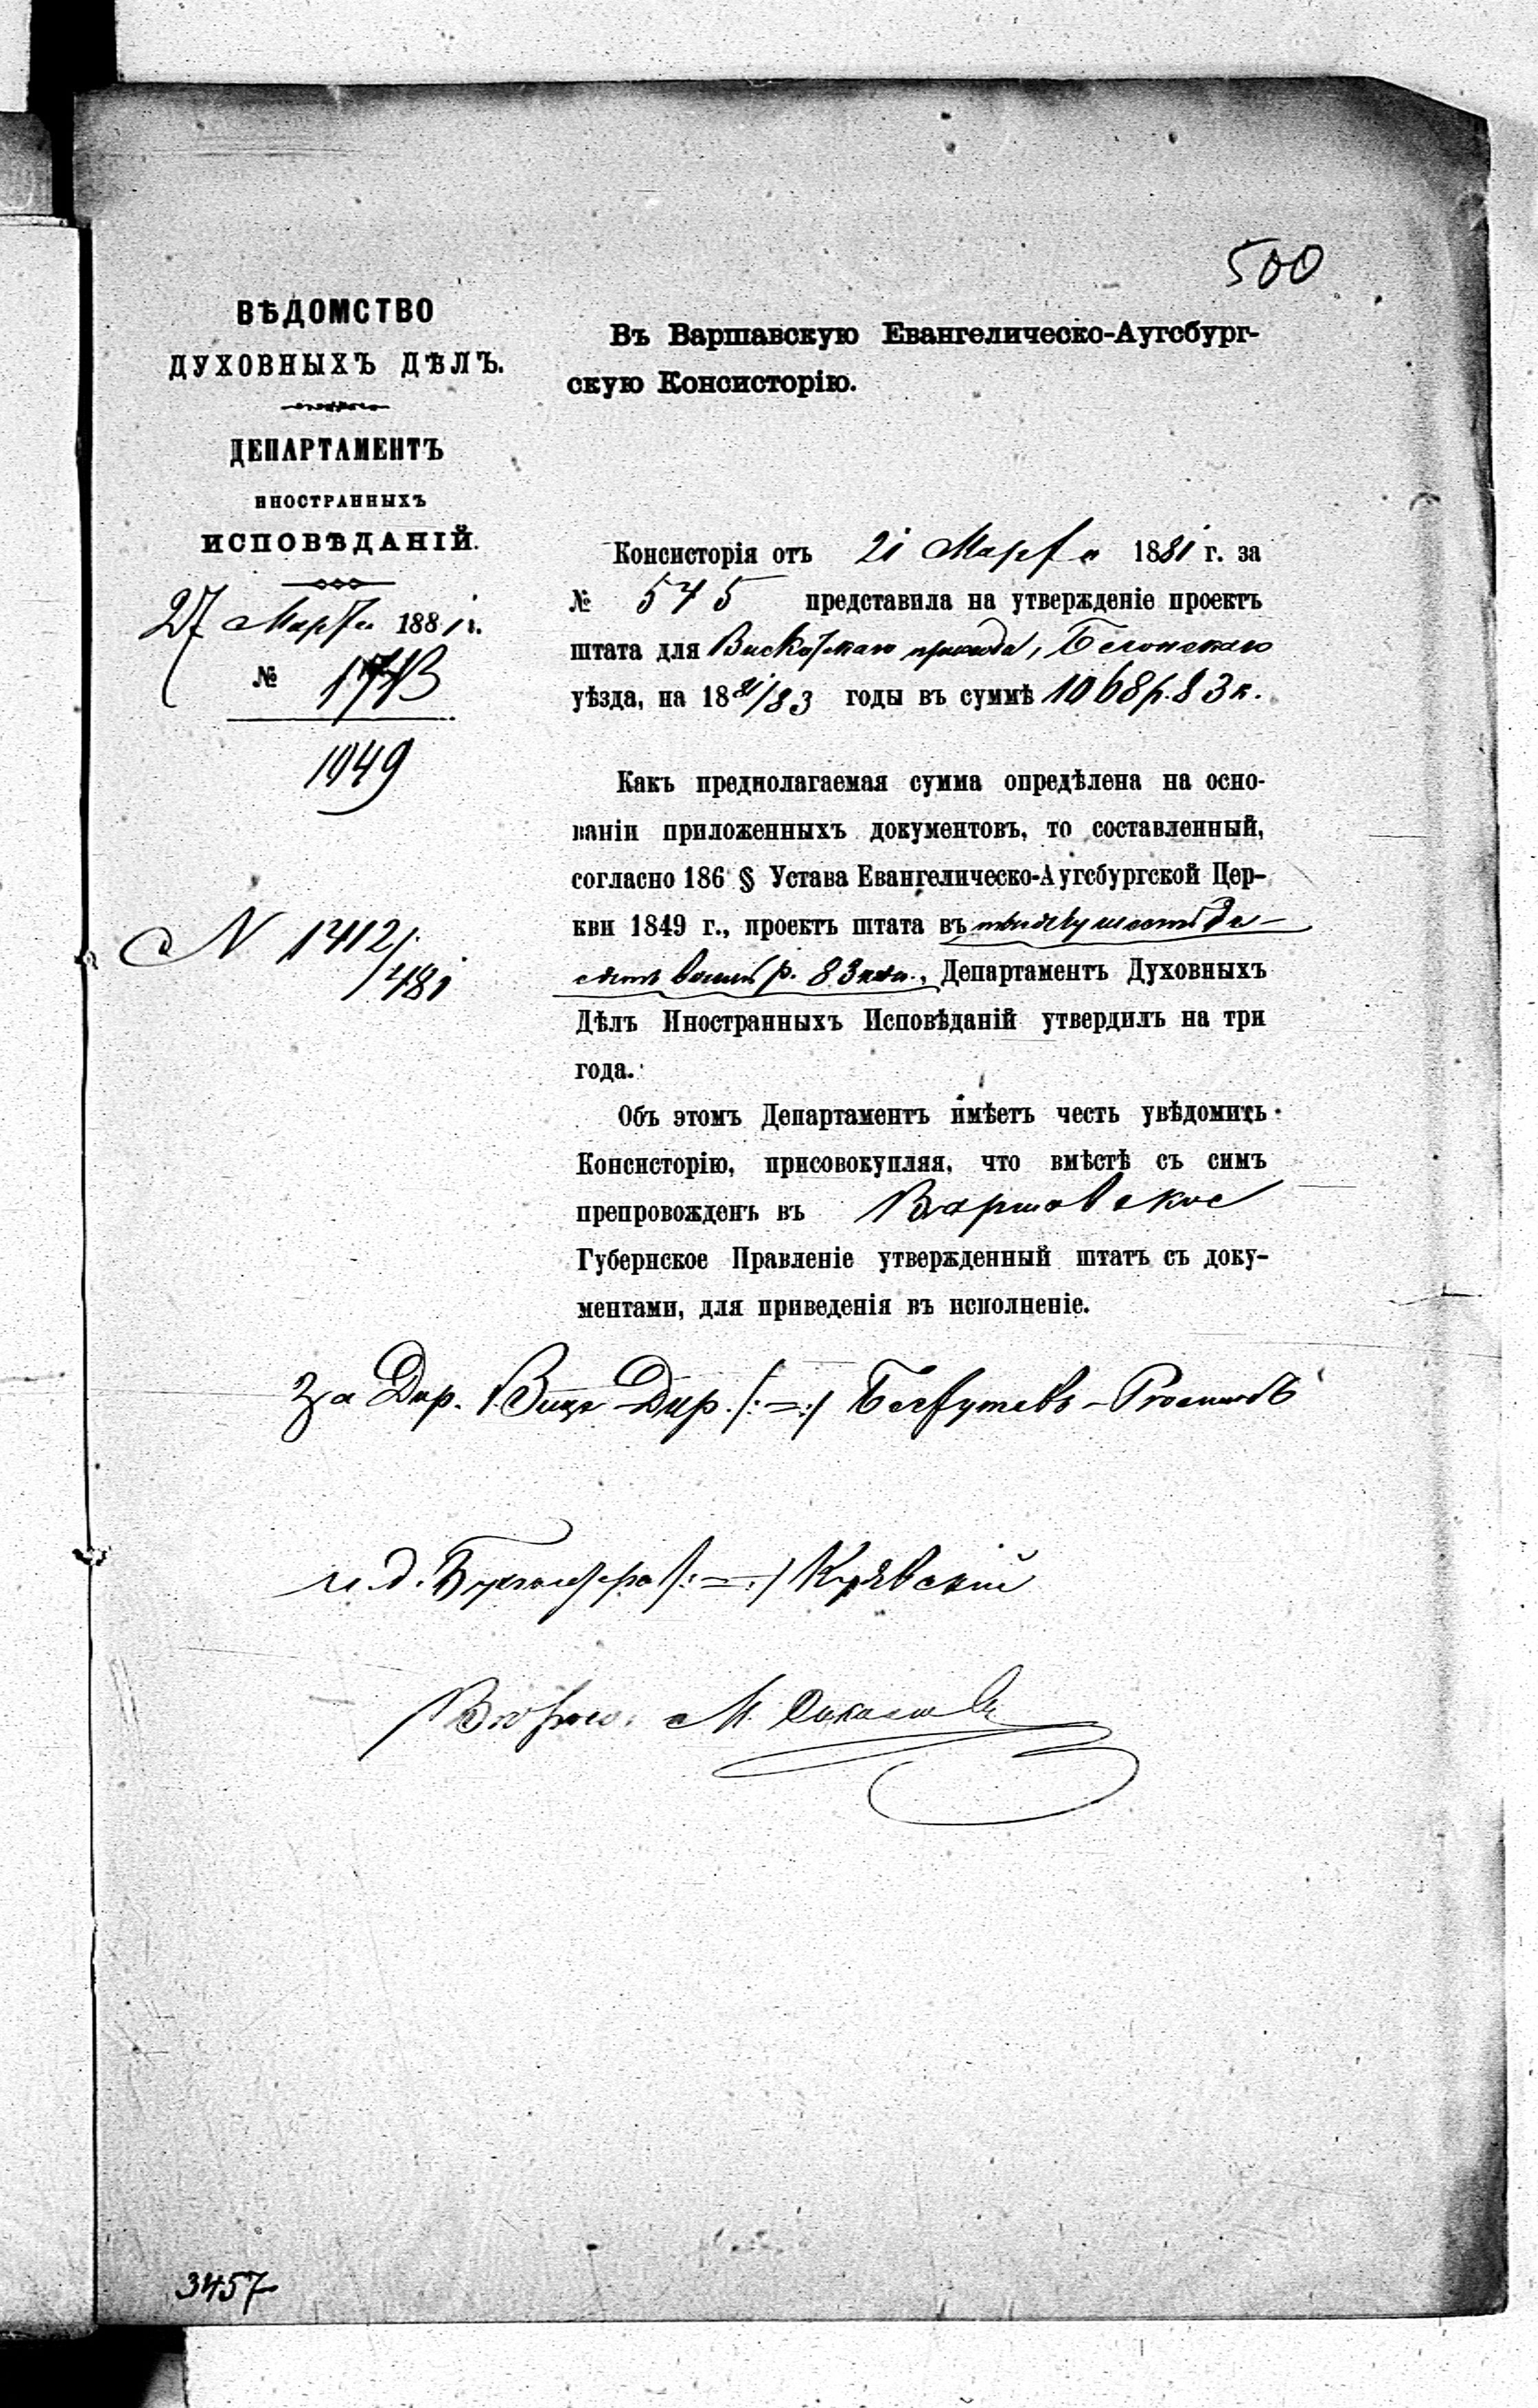 500
ВѢДОМСТВО
ДУХОВНЫХЪ ДѢЛЪ.
ДЕПАРТАМЕНТЪ
ИНОСТРАННЫХЪ
ИСПОВѢДАНІЙ.
27 Марта 1881 г.
№ 1743
1049
N 1412/481
Въ Варшавскую Евангелическо-Аугсбург-
скую Консисторію.
Консисторія отъ 21 Марта 1881 г. за
№ 545 представила на утвержденіе проектъ
штата для Вискитскаго прихода, Блонскаго
уѣзда, на 1881/83 годы въ суммѣ 1068 р. 83 к.
Какъ предполагаемая сумма опредѣлена на осно-
ваніи приложенныхъ документовъ, то составленный,
согласно 186 § Устава Евангелическо-Аугсбургской Цер-
кви 1849 г., проектъ штата въ тысячу шестьде-
сятъ восемь р. 83 коп., Департаментъ Духовныхъ
Дѣлъ Иностранныхъ Исповѣданій утвердилъ на три
года.
Объ этомъ Департаментъ имѣетъ честь увѣдомить
Консисторію, присовокупляя, что вмѣстѣ съ симъ
препровожденъ въ Варшавское
Губернское Правленіе утвержденный штатъ съ доку-
ментами, для приведенія въ исполненіе.
За Дир. Вице-Дир. /:-:/
и. д. Бухгалтера /:-:/ Куявскій
3457